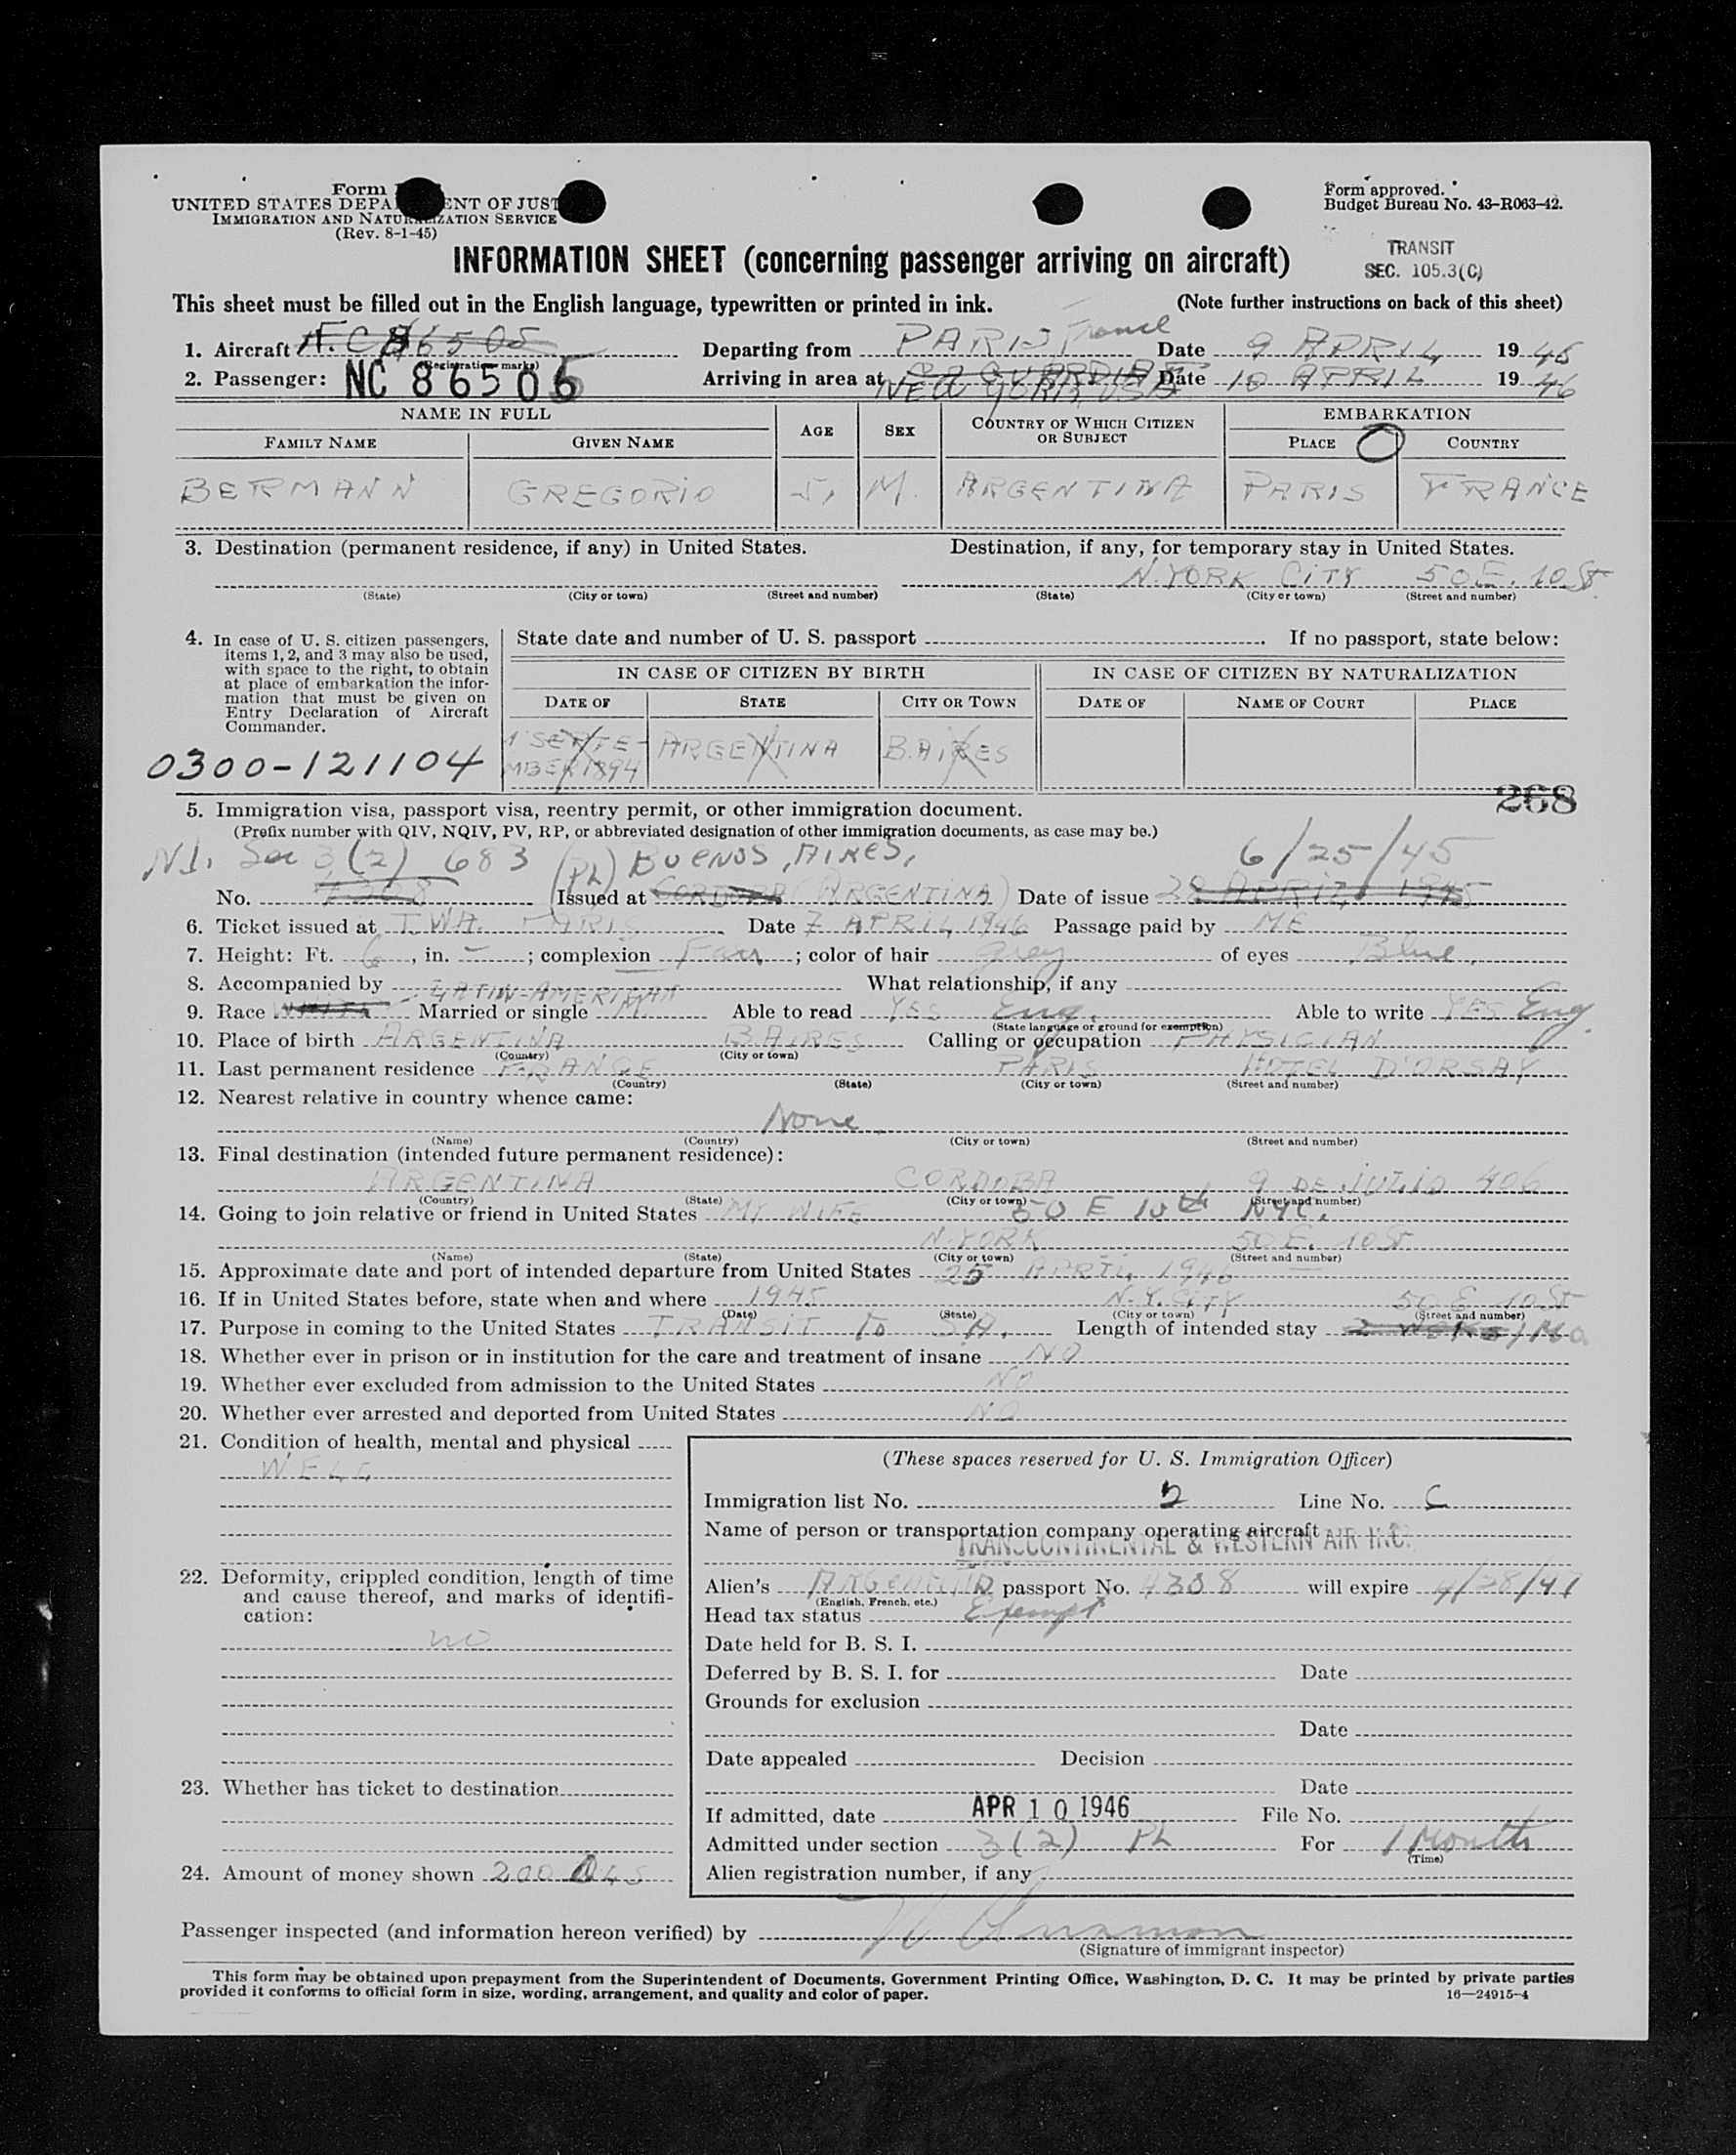 Form
UNITED STATES DEPA ENT OF JUST
IMMIGRATION AND NATURALIZATION SERVICE
(Rev. 8-1-45)
Form approved.
Budget Bureau No. 43-R063-42.
TRANSIT
SEC. 105.3(C)
INFORMATION SHEET (concerning passenger arriving on aircraft)
This sheet must be filled out in the English language, typewritten or printed in ink. (Note further instructions on back of this sheet)
1. Aircraft Departing from PARIS France Date 9 APRIL 19 46
(Registration marks)
2. Passenger: NC 86505 Arriving in area at NEW YORK USA Date 10 APRIL 19 46
NAME IN FULL AGE SEX COUNTRY OF WHICH CITIZEN OR SUBJECT EMBARKATION
FAMILY NAME GIVEN NAME PLACE COUNTRY
BERMANN GREGORIO 51 M. ARGENTINA PARIS FRANCE
3. Destination (permanent residence, if any) in United States. Destination, if any, for temporary stay in United States.
N. YORK CITY 50 E. 10 St
(State) (City or town) (Street and number) (State) (City or town) (Street and number)
4. In case of U. S. citizen passengers, items 1, 2, and 3 may also be used, with space to the right, to obtain at place of embarkation the information that must be given on Entry Declaration of Aircraft Commander.
State date and number of U. S. passport If no passport, state below:
IN CASE OF CITIZEN BY BIRTH IN CASE OF CITIZEN BY NATURALIZATION
DATE OF STATE CITY OR TOWN DATE OF NAME OF COURT PLACE
1 SEPTE-MBER 1894 ARGENTINA B. AIRES
0300-121104
268
5. Immigration visa, passport visa, reentry permit, or other immigration document.
(Prefix number with QIV, NQIV, PV, RP, or abbreviated designation of other immigration documents, as case may be.)
N.I. Sec 3(2) 683 (PL) BUENOS AIRES, 6/25/45
No. Issued at CORDOBA (ARGENTINA) Date of issue 28 APRIL 1945
6. Ticket issued at T.WA. PARIS Date 7 APRIL 1946 Passage paid by ME
7. Height: Ft. 6, in. –; complexion Fair; color of hair grey of eyes Blue.
8. Accompanied by What relationship, if any
LATIN-AMERICAN
9. Race WHITE Married or single M. Able to read YES Eng. Able to write YES Eng.
(State language or ground for exemption)
10. Place of birth ARGENTINA B. AIRES Calling or occupation PHYSICIAN
(Country) (City or town)
11. Last permanent residence FRANCE PARIS HOTEL D'ORSAY
(Country) (State) (City or town) (Street and number)
12. Nearest relative in country whence came:
None
(Name) (Country) (City or town) (Street and number)
13. Final destination (intended future permanent residence):
ARGENTINA CORDOBA 9 DE JULIO 406
(Country) (State) (City or town) (Street and number)
14. Going to join relative or friend in United States MY WIFE 50 E 10th NYC.
N. YORK 50 E. 10 St
(Name) (State) (City or town) (Street and number)
15. Approximate date and port of intended departure from United States 25 APRIL 1946
16. If in United States before, state when and where 1945 N.Y. CITY 50 E 10 St
(Date) (State) (City or town) (Street and number)
17. Purpose in coming to the United States TRANSIT to S.A. Length of intended stay 2 weeks 1 Mo
18. Whether ever in prison or in institution for the care and treatment of insane NO
19. Whether ever excluded from admission to the United States NO
20. Whether ever arrested and deported from United States NO
21. Condition of health, mental and physical
WELL
22. Deformity, crippled condition, length of time and cause thereof, and marks of identification:
no
23. Whether has ticket to destination
24. Amount of money shown 200 DLS
(These spaces reserved for U. S. Immigration Officer)
Immigration list No. 2 Line No. C
Name of person or transportation company operating aircraft
TRANSCONTINENTAL & WESTERN AIR INC.
Alien's passport No. 4308 will expire 4/28/47
(English, French, etc.)
Head tax status Exempt
Date held for B. S. I.
Deferred by B. S. I. for Date
Grounds for exclusion
Date
Date appealed Decision
Date
If admitted, date APR 10 1946 File No.
Admitted under section 3(2) PL For 1 Month
(Time)
Alien registration number, if any
Passenger inspected (and information hereon verified) by
(Signature of immigrant inspector)
This form may be obtained upon prepayment from the Superintendent of Documents, Government Printing Office, Washington, D. C. It may be printed by private parties
provided it conforms to official form in size, wording, arrangement, and quality and color of paper. 16—24915-4